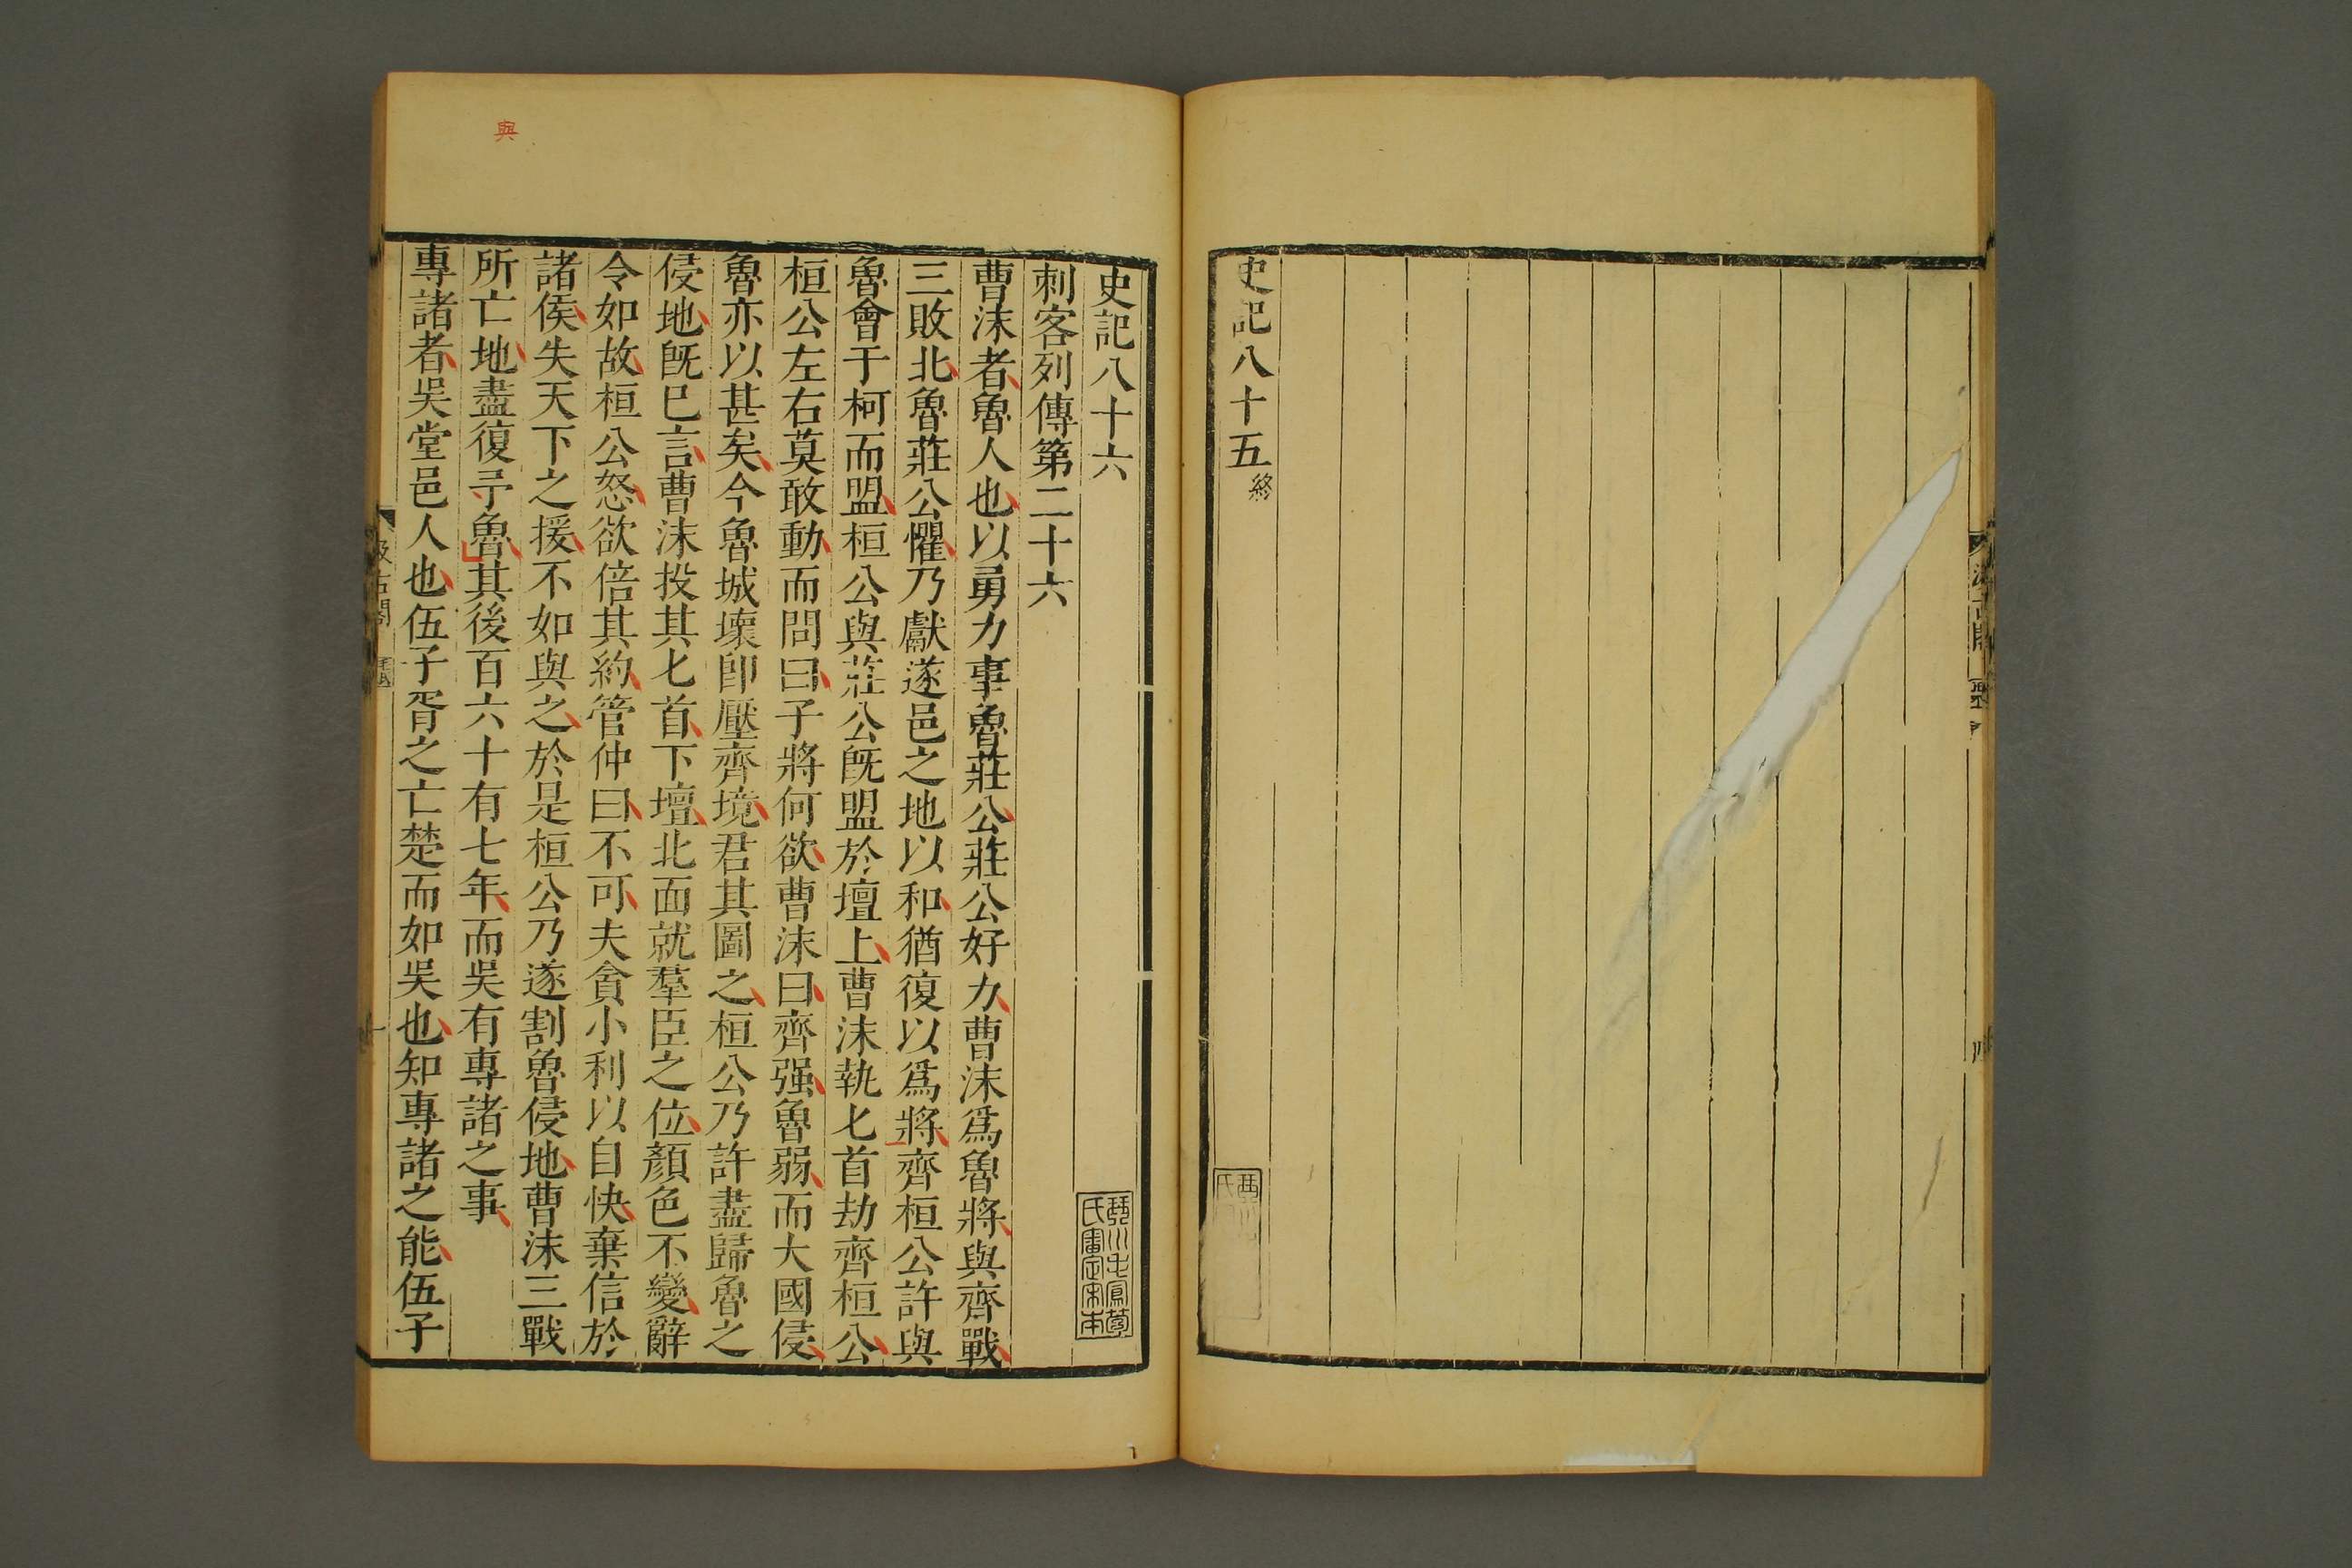 史記八十五終
史記八十六
刺客列傳第二十六
曹沫者魯人也以勇力事魯莊公莊公好力曹沫爲魯將與齊戰
三敗北魯莊公懼乃獻遂邑之地以和猶復以爲將齊桓公許與
魯會于柯而盟桓公與莊公旣盟於壇上曹沫執匕首劫齊桓公
桓公左右莫敢動而問曰子將何欲曹沫曰齊强魯弱而大國侵
魯亦以甚矣今魯城壞卽壓齊境君其圖之桓公乃許盡歸魯之
侵地旣已言曹沫投其匕首下壇北面就羣臣之位顏色不變辭
令如故桓公怒欲倍其約管仲曰不可夫貪小利以自快棄信於
諸侯失天下之援不如與之於是桓公乃遂割魯侵地曹沫三戰
所亡地盡復予魯其後百六十有七年而吳有專諸之事
專諸者吳堂邑人也伍子胥之亡楚而如吳也知專諸之能伍子
與
琴川毛鳳苞
氏審定宋本
汲古閣